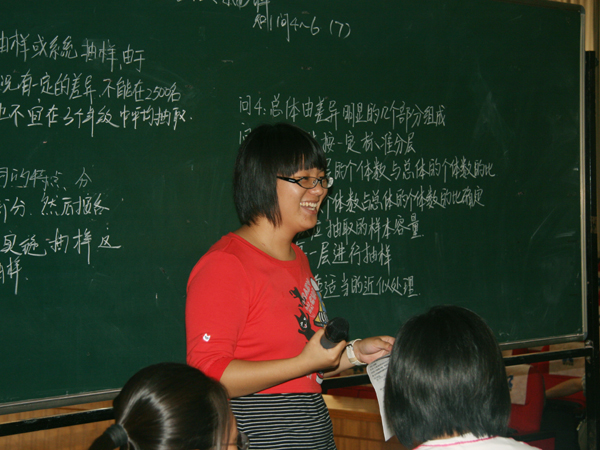 例1问4~6 (7)
由样或系统抽样,由于
况有一定的差异,不能在2500名
也不宜在三个年级中平均抽取.
的特点、分
部分,然后按各
实施抽样这
抽样.
问4:总体由差异明显的几个部分组成
按一定标准分层
的个体数与总体的个体数的比
个体数与总体的个体数的比确定
抽取的样本容量
一层进行抽样
适当的近似处理